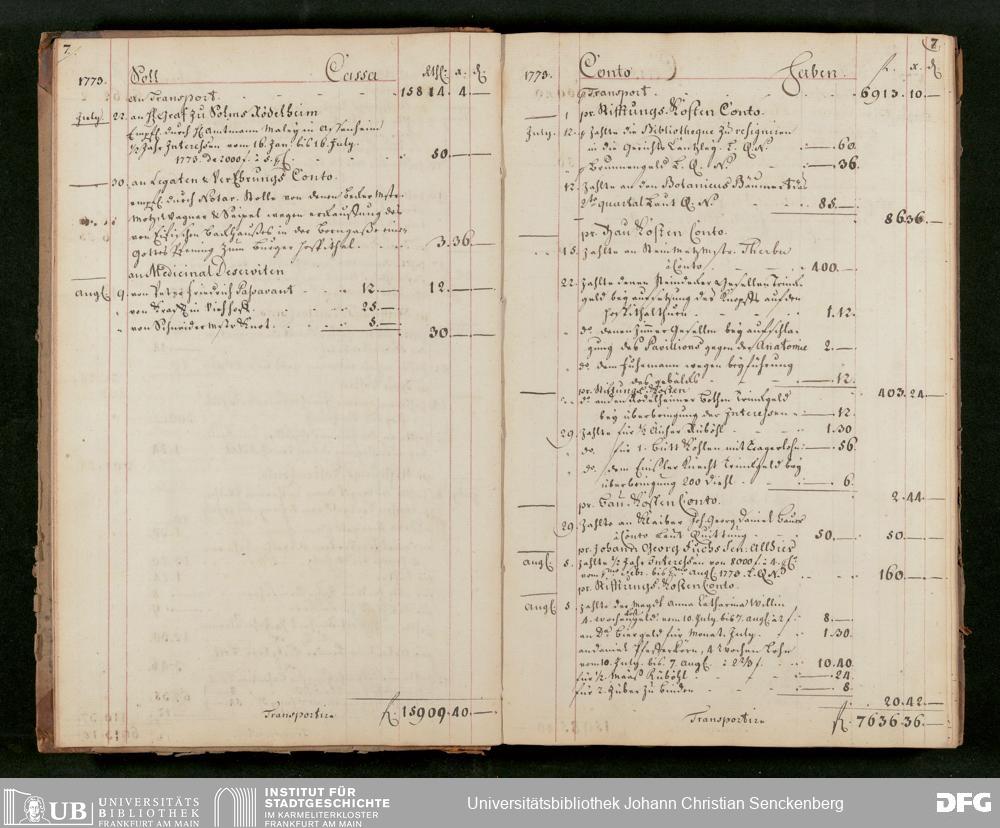 7.
1773. Soll Cassa Rthl: x: ₰
an Transport. 15814. 4.
July. 22. an H. Graf zu Solms Rödelheim
Empf. durch H. Amtmann Maley in Assenheim
½ Jahr Interessen vom 16. Jan. bis 16. July.
1773. de 2000 f. 50.
30. an Legaten & Verehrungs Conto.
empf. durch Notar.
Wagner & wegen des
in der Borngasse
zum Burger Hospithal 3. 36.
an Medicinal Deserviten
Aug. 9. von Peter Friedrich Passavant 12. 12.
von 25.
von Schneider Mstr. Knot. 5. 30.
Transportire fl. 15909. 40.
7.
1773. Conto Haben. fl. x. ₰
pr Transport 6913. 10.
1 pr. Stifftungs Kosten Conto.
July. 12. zahlte die Bibliotheque zu
in die Gerichts Cantzley. L. Q. N. 60.
Brunnengeld L. Q. N. 36.
12. Zahlte an den Botanicus Bäumertus
2te quartal Laut Q. N. 85.
86 36.
pr. Bau Kosten Conto.
15. Zahlte an Steinmetz Mstr. Therbu
à Conto 400.
22. Zahlte denen Gesellen Trinck-
geld bey aufsetzung des Knopfs auf den
Hospithalthurn. 1. 12.
do. denen Zimmer Gesellen bey aufschla-
gung des Pavillions gegen der Anatomie 2.
do. dem Fuhrmann wegen beyführung
des gebälcks 12.
403. 24.
pr. Stiftungs Kosten
do. an den Rödelheimer Botten Trinckgeld
bey überbringung der Interessen 12.
29. Zahlte für ½ Rüböhl 1. 30
do. für 1. Butt Kohlen mit Tragerlohn 56.
do. dem Knecht Trinckgeld bey
überbringung 200 Diehl 6.
2. 44.
pr. Bau Kosten Conto.
29. Zahlte an Kleiber Joh. Georg Daniel Bauer
à Conto Laut Quittung 50. 50.
pr. Johann Georg Fuchs Sen. Allhier
Aug. 5. Zahlte ½ Jahr Interessen von 8000 f. à 4.
bis Aug. 1773. L. Q. N. 160.
pr. Stifftungs Kosten Conto.
Aug. 5. Zahlte der Magdt Anna Catharina Willin
4. wochengeld vom 10. July. bis 7. Aug. à 2 f 8.
an Do. Biergeld für Monat. July. 1. 30.
an Daniel Pfefferkorn, 4 Wochen Lohn
vom 10. July. bis 7. Aug. à 2⅔ f. 10. 40.
für ½. Maas Rüböhl 24.
für 2. Züber zu binden 8
20. 42.
Transportire fl. 7636. 36.
UB UNIVERSITÄTS
BIBLIOTHEK
FRANKFURT AM MAIN
INSTITUT FÜR
STADTGESCHICHTE
IM KARMELITERKLOSTER
FRANKFURT AM MAIN
Universitätsbibliothek Johann Christian Senckenberg
DFG